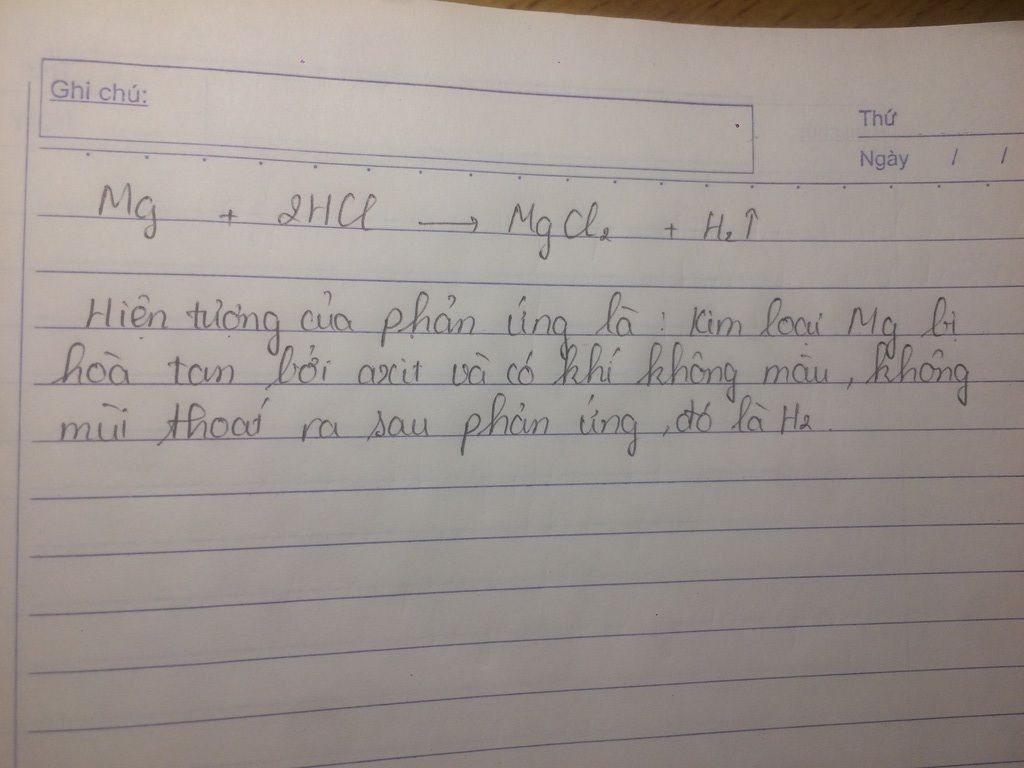 Ghi chú:
Thứ
Ngày / /
Mg + 2HCl → MgCl₂ + H₂↑
Hiện tượng của phản ứng là : Kim loại Mg bị
hoà tan bởi axit và có khí không màu, không
mùi thoát ra sau phản ứng, đó là H₂.